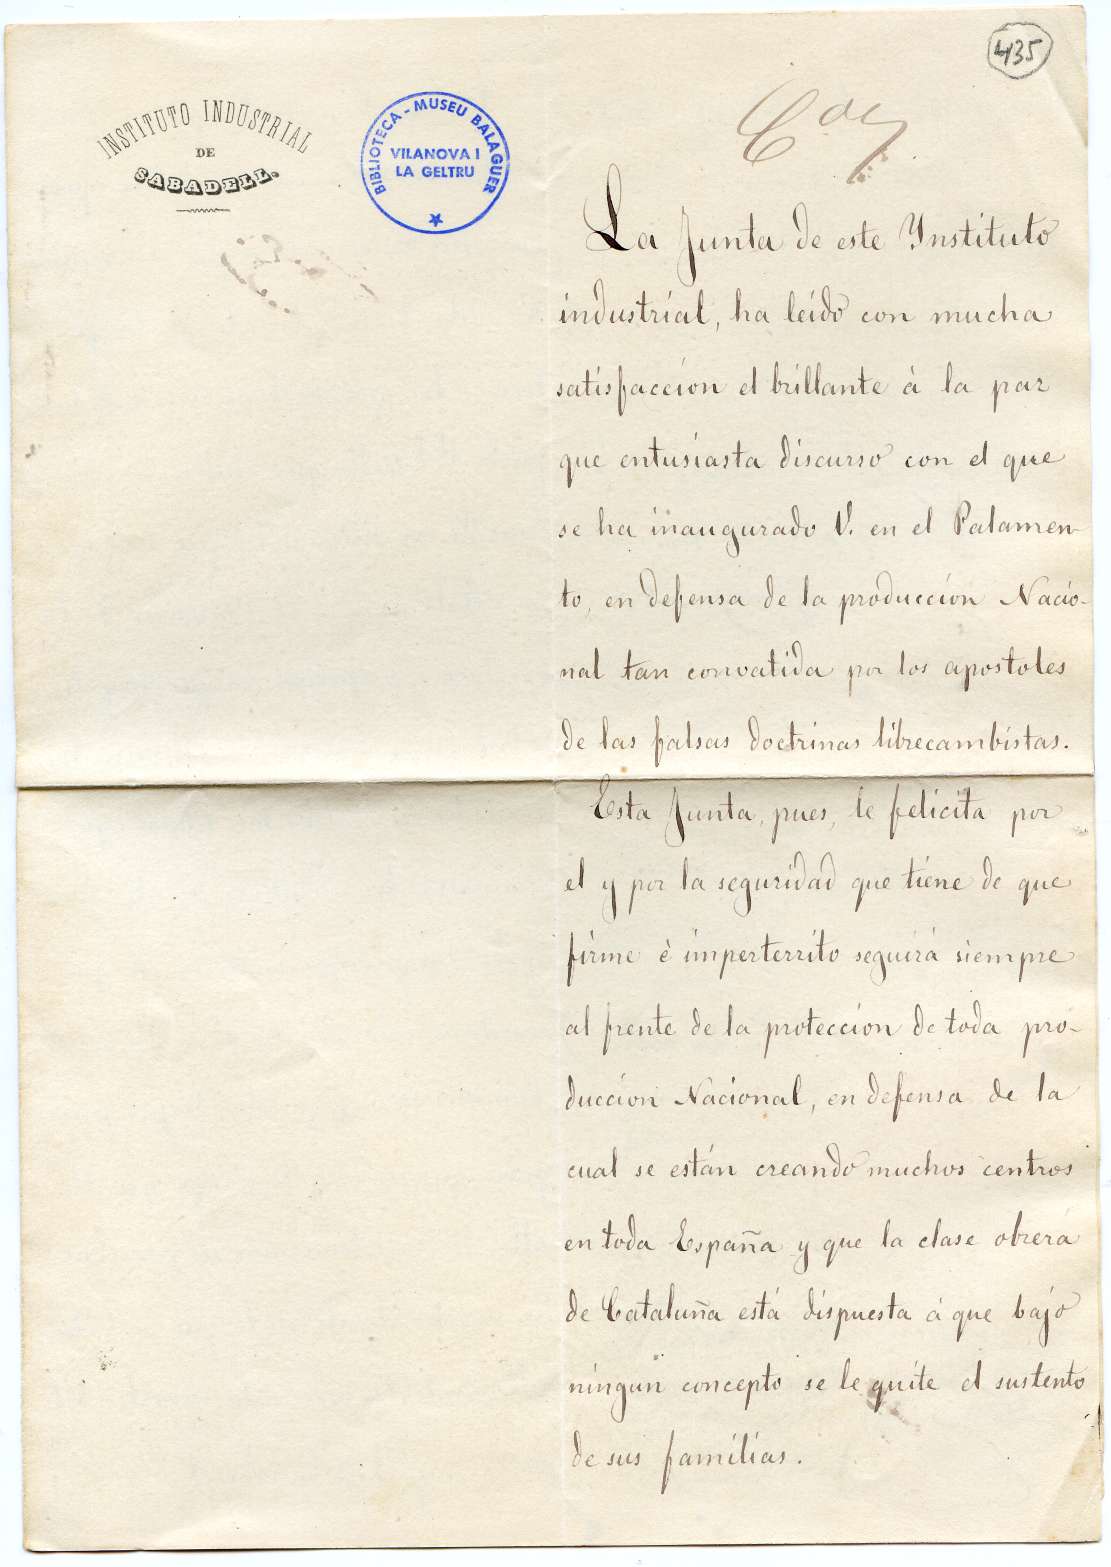 435
INSTITUTO INDUSTRIAL
DE
SABADELL.
BIBLIOTECA - MUSEU BALAGUER
VILANOVA I
LA GELTRU
La Junta de este Ynstituto
industrial, ha leido con mucha
satisfaccion el brillante á la par
que entusiasta discurso con el que
se ha inaugurado V. en el Palamen-
to, en defensa de la produccion Nacio-
nal tan convatida por los apostoles
de las falsas doctrinas librecambistas.
Esta Junta, pues, le felicita por
el y por la seguridad que tiene de que
firme é imperterrito seguirá siempre
al frente de la proteccion de toda pro-
duccion Nacional, en defensa de la
cual se están creando muchos centros
en toda España y que la clase obrera
de Cataluña está dispuesta á que bajo
ningun concepto se le quite el sustento
de sus familias.